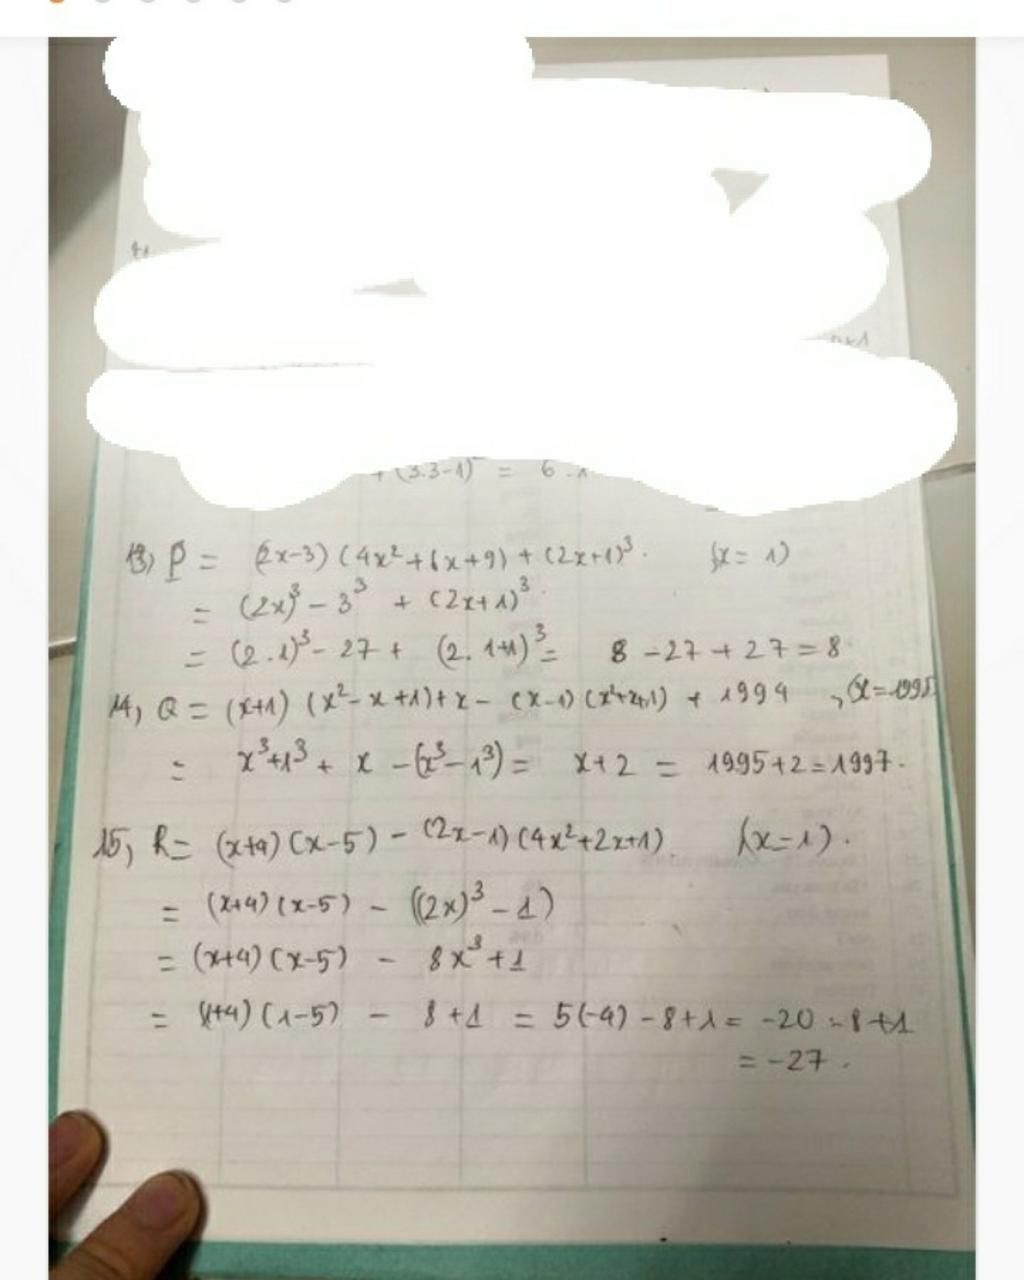 + (3.3-1) = 6.1
13, P = (2x-3) (4x² + 6x + 9) + (2x+1)³. (x = 1)
= (2x)³ - 3³ + (2x+1)³
= (2.1)³ - 27 + (2.1+1)³ = 8 - 27 + 27 = 8.
14, Q = (x+1) (x² - x + 1) + x - (x-1) (x²+x+1) + 1994 , (x = 1995)
= x³+1³ + x - (x³ - 1³) = x+2 = 1995+2 = 1997.
15, R = (x+4) (x-5) - (2x-1) (4x²+2x+1) (x=1).
= (x+4) (x-5) - ((2x)³ - 1)
= (x+4) (x-5) - 8x³ + 1
= (1+4) (1-5) - 8 + 1 = 5(-4) - 8 + 1 = -20 - 8 + 1
= -27.